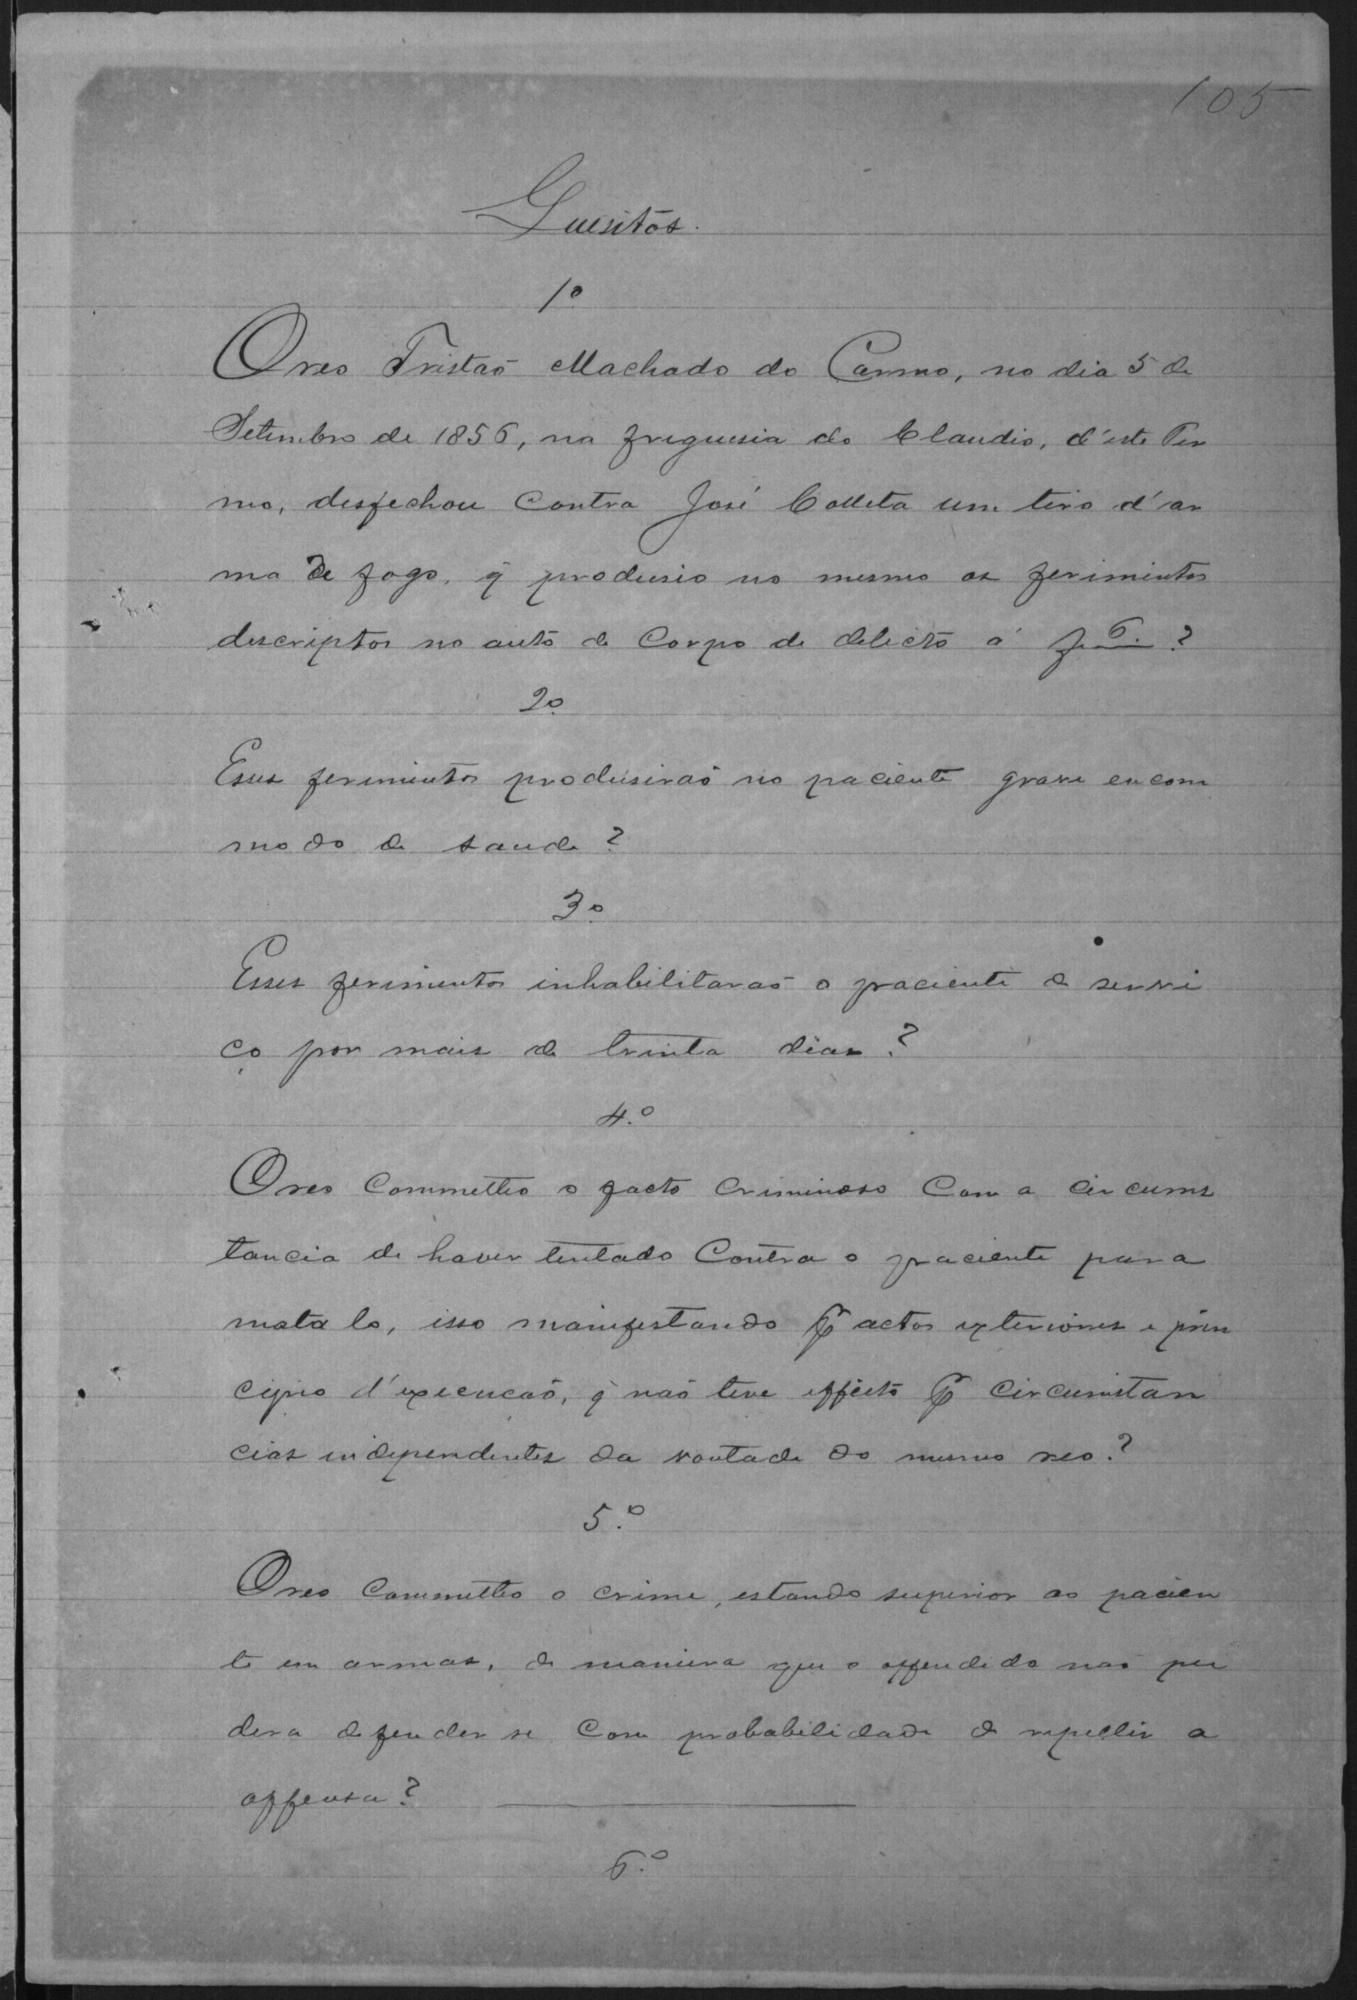 105
Quesitos.
1º
O reo Tristaõ Machado do Carmo, no dia 5 de
Setembro de 1856, na freguesia do Claudio, d'este Ter
mo, desfechou contra José Colleta um tiro d'ar
ma de fogo, q̃ produsio no mesmo os ferimentos
descriptos no auto de corpo de delicto á f. 6. ?
2º
Esses ferimentos produsiraõ no paciente grave encom
modo de saude ?
3º
Esses ferimentos inhabilitaraõ o paciente de servi
ço por mais de trinta dias ?
4.º
O reo commetteo o facto criminoso com a circums
tancia de haver tentado contra o paciente para
mata lo, isso manifestando p̃ actos exteriores e prin
cipio d'execucaõ, q̃ naõ teve effeito p̃ circunstan
cias independentes da vontade do mesmo reo. ?
5.º
O reo commetteo o crime, estando superior ao pacien
te em armas, de maneira que o offendido naõ pu
dera defender se com probabilidade de repellir a
offensa ?
6.º